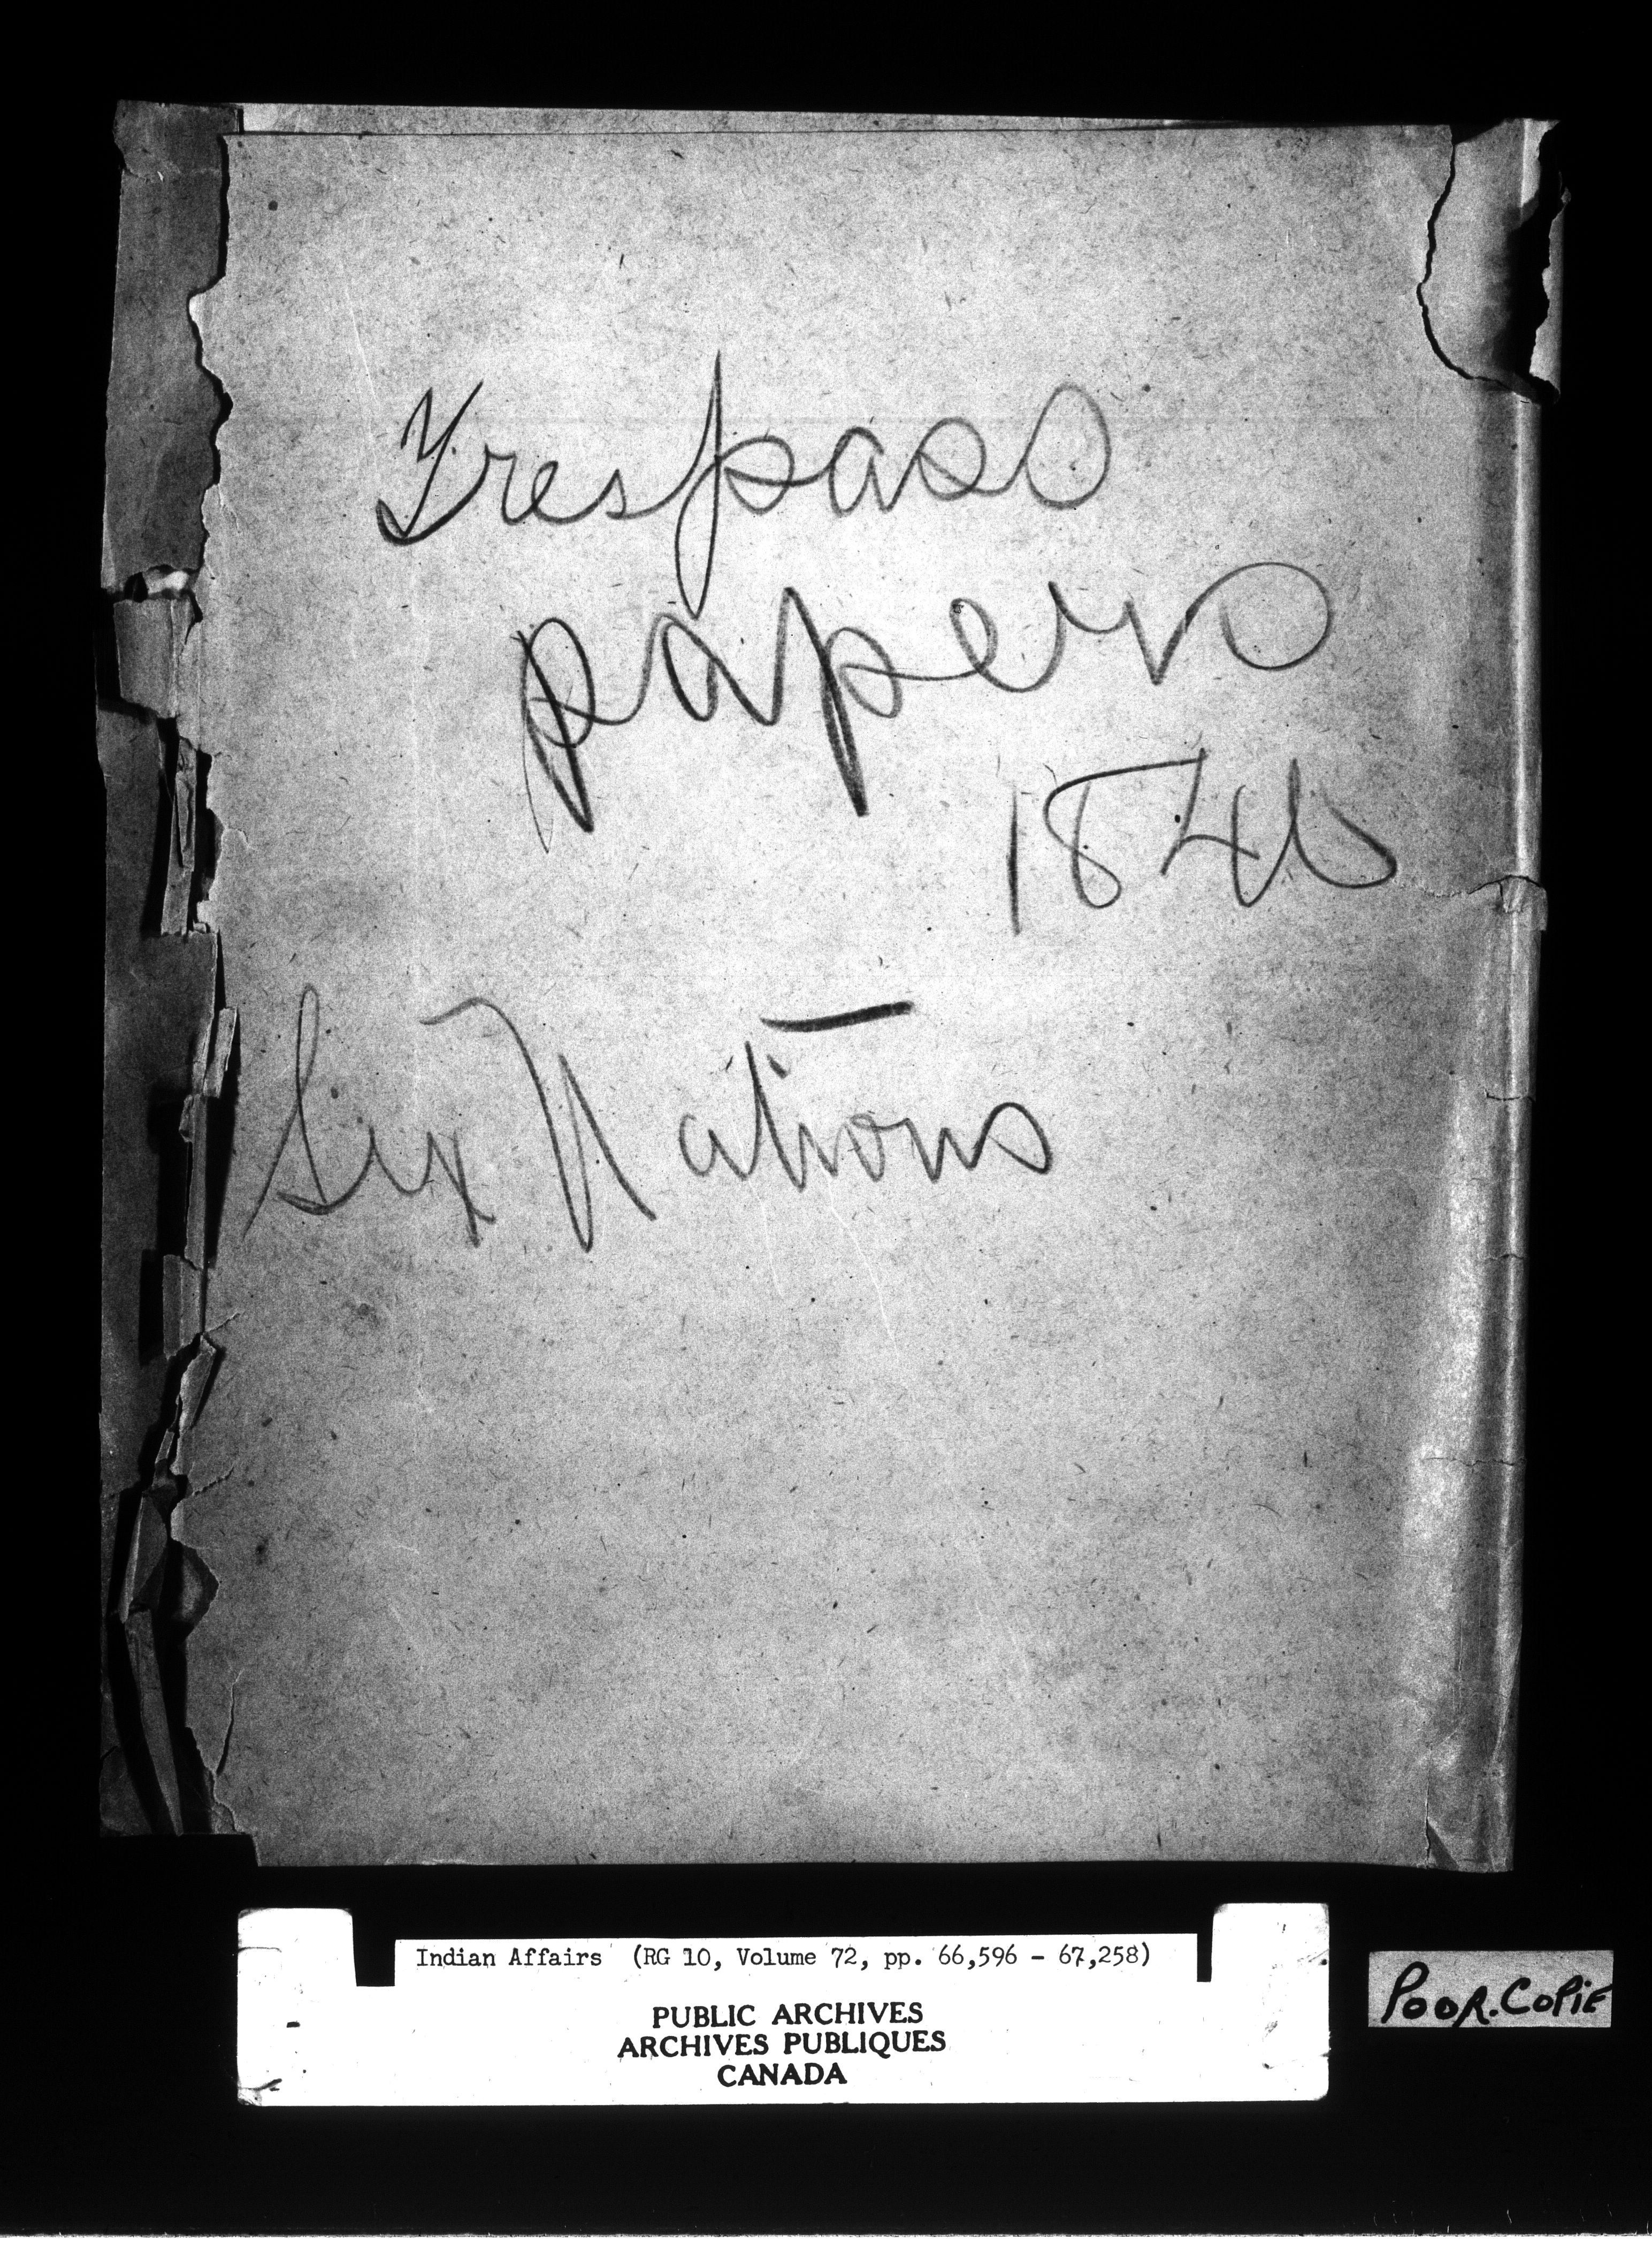 Trespass
papers
1846
Six Nations
Indian Affairs (RG 10, Volume 72, pp. 66,596 - 67,258)
PUBLIC ARCHIVES
ARCHIVES PUBLIQUES
CANADA
POOR.COPIE